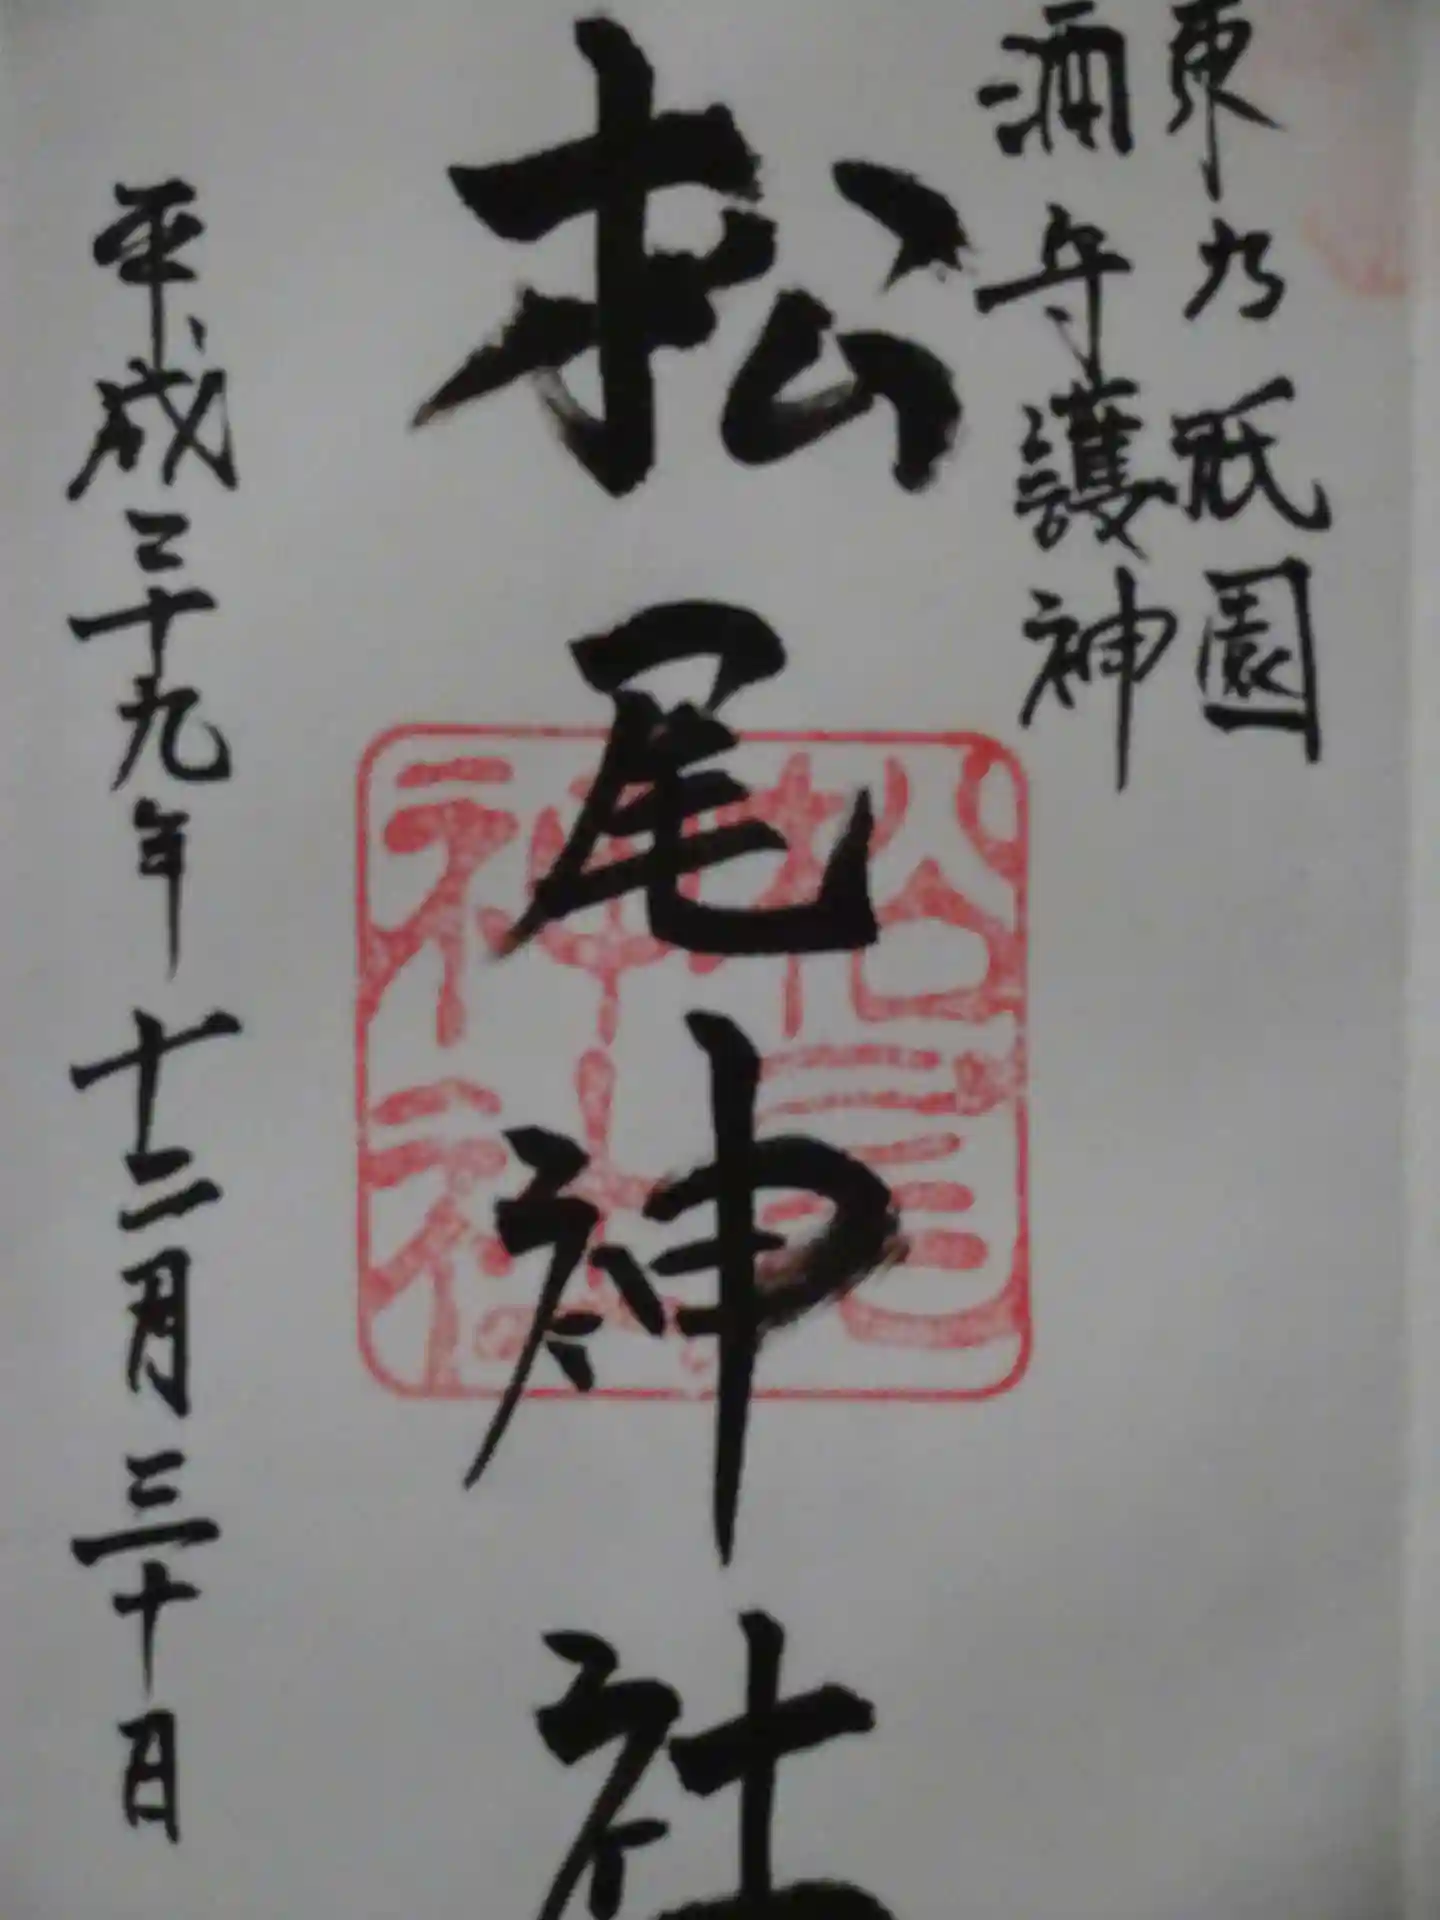 東乃祇園
酒守護神
松尾神社
松尾
神社
平成二十九年十二月三十日